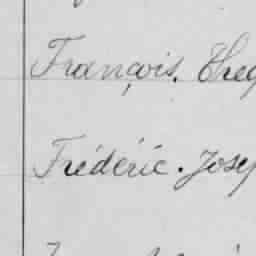 François. Theo
Frédéric. Josep